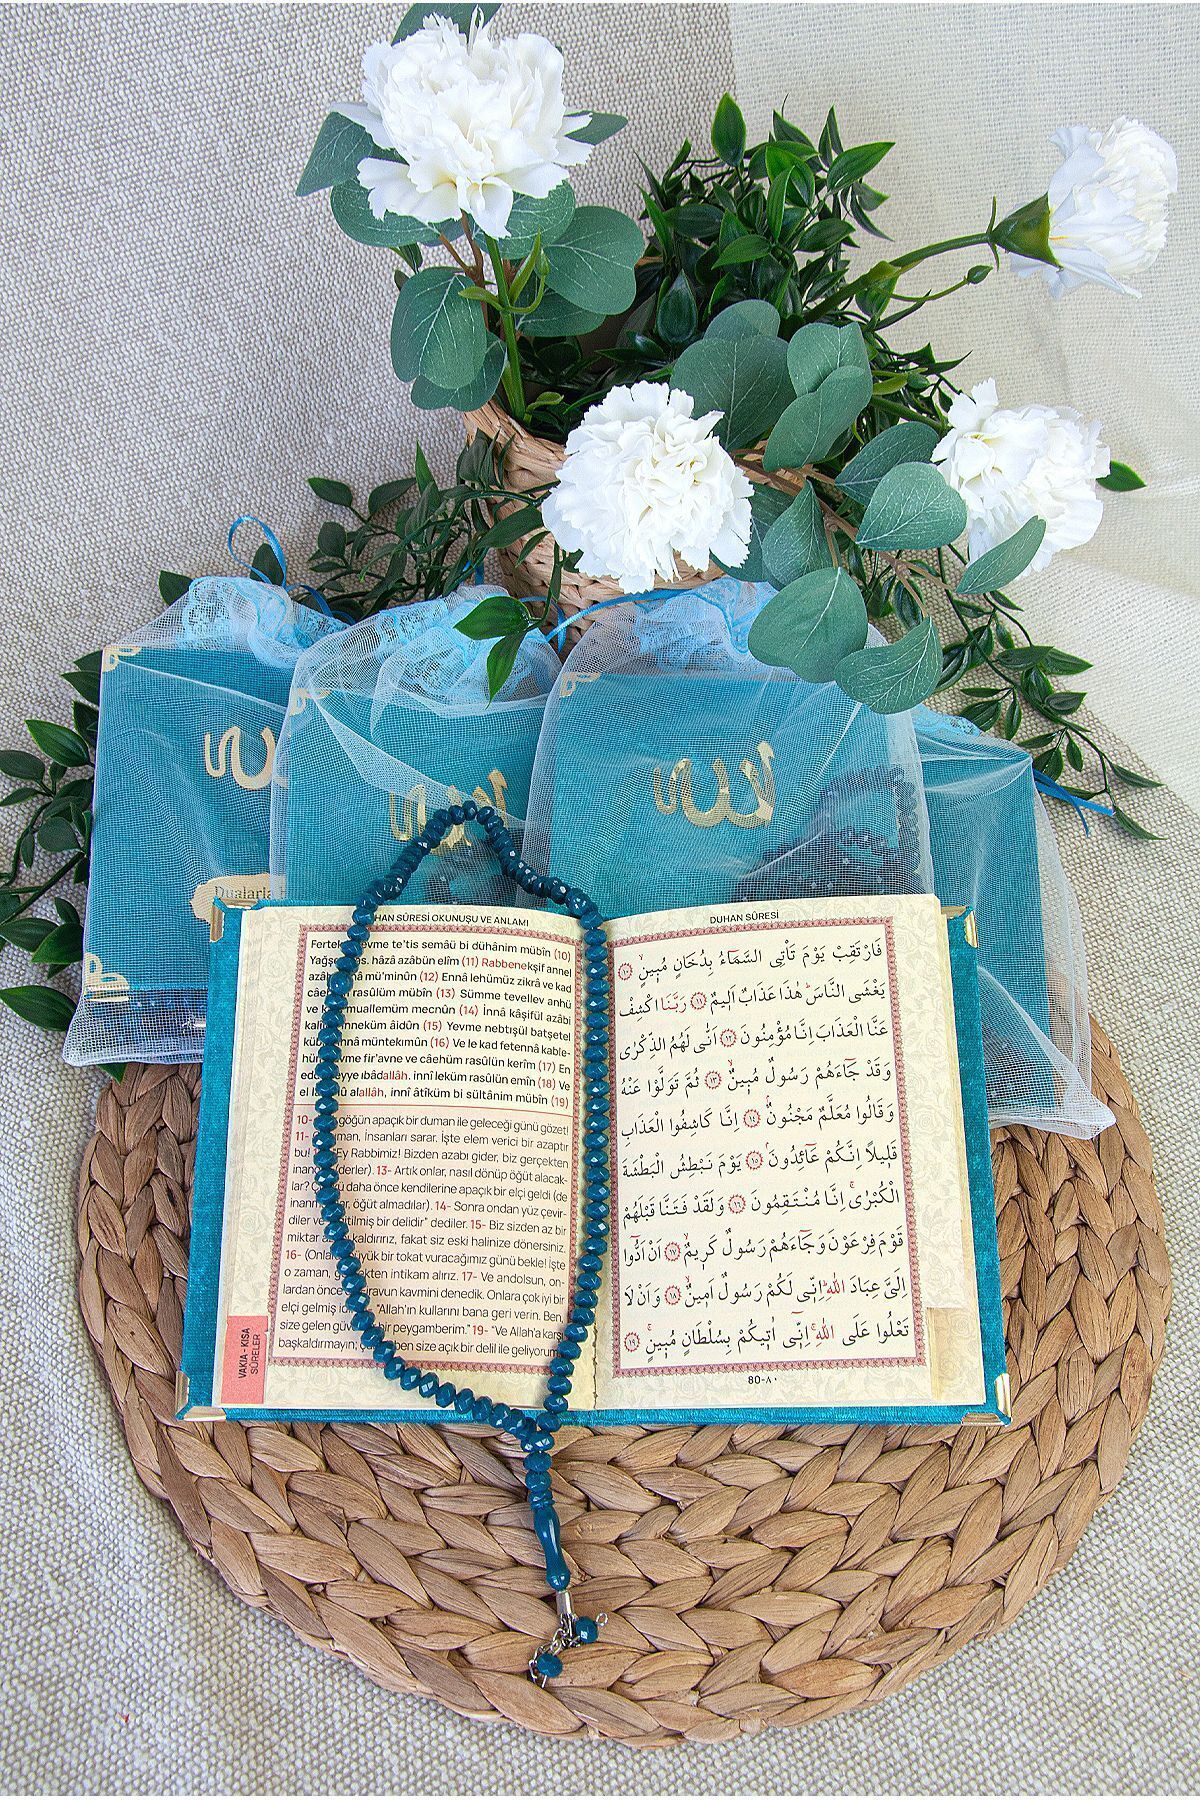 Dualarla
HAN SÛRESİ OKUNUŞU VE ANLAMI
yevme te'tis semâü bi dühânim mübîn (10)
hâzâ azâbün elîm (11) Rabbenekşif annel
mü'minûn (12) Ennâ lehümüz zikrâ ve kad
rasûlüm mübîn (13) Sümme tevellev anhü
ve muallemüm mecnûn (14) İnnâ kâşifül azâbi
inneküm âidûn (15) Yevme nebtışül batşetel
innâ müntekımûn (16) Ve le kad fetennâ kable-
fir'avne ve câehüm rasûlün kerîm (17) En
ıbâdallâh. innî leküm rasûlün emîn (18) Ve
alallâh, innî âtîküm bi sültânim mübîn (19)
10- göğün apaçık bir duman ile geleceği günü gözet!
11- insanları sarar. İşte elem verici bir azaptır
bu! "Ey Rabbimiz! Bizden azabı gider, biz gerçekten
(derler). 13- Artık onlar, nasıl dönüp öğüt alacak-
lar? daha önce kendilerine apaçık bir elçi geldi (de
öğüt almadılar). 14- Sonra ondan yüz çevir-
diler ve bir delidir" dediler. 15- Biz sizden az bir
miktar kaldırırız, fakat siz eski halinize dönersiniz.
16- (Onlara) büyük bir tokat vuracağımız günü bekle! işte
o zaman, intikam alırız. 17- Ve andolsun, on-
lardan önce kavmini denedik. Onlara çok iyi bir
elçi gelmiş "Allah'ın kullarını bana geri verin. Ben,
size gelen bir peygamberim." 19- "Ve Allah'a karşı
başkaldırmayın, ben size açık bir delil ile geliyorum
VAKIA - KISA
SÛRELER
DUHAN SÛRESİ
فَارْتَقِبْ يَوْمَ تَأْتِي السَّمَاءُ بِدُخَانٍ مُبِينٍ ﴿١٠﴾
يَغْشَى النَّاسَ هٰذَا عَذَابٌ اَلِيمٌ ﴿١١﴾ رَبَّنَا اكْشِفْ
عَنَّا الْعَذَابَ اِنَّا مُؤْمِنُونَ ﴿١٢﴾ اَنّٰى لَهُمُ الذِّكْرٰى
وَقَدْ جَاءَهُمْ رَسُولٌ مُبِينٌ ﴿١٣﴾ ثُمَّ تَوَلَّوْا عَنْهُ
وَقَالُوا مُعَلَّمٌ مَجْنُونٌ ﴿١٤﴾ اِنَّا كَاشِفُوا الْعَذَابِ
قَلِيلاً اِنَّكُمْ عَائِدُونَ ﴿١٥﴾ يَوْمَ نَبْطِشُ الْبَطْشَةَ
الْكُبْرٰى اِنَّا مُنْتَقِمُونَ ﴿١٦﴾ وَلَقَدْ فَتَنَّا قَبْلَهُمْ
قَوْمَ فِرْعَوْنَ وَجَاءَهُمْ رَسُولٌ كَرِيمٌ ﴿١٧﴾ اَنْ اَدُّوا
اِلَيَّ عِبَادَ اللهِ اِنِّي لَكُمْ رَسُولٌ اَمِينٌ ﴿١٨﴾ وَاَنْ لَا
تَعْلُوا عَلَى اللهِ اِنِّي اٰتِيكُمْ بِسُلْطَانٍ مُبِينٍ ﴿١٩﴾
80-٨٠
الله
الله
الله